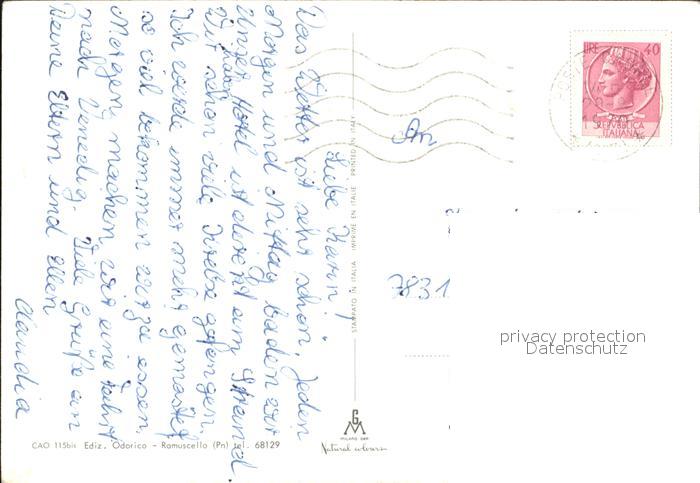 Liebe Karin!
Das Wetter ist sehr schön, Jeden
Morgen und Mittag baden wir
Unser Hotel ist direkt am Strand.
Wir haben
schon viele Krebse gefangen.
Ich werde immer mehr gemästet
so viel bekommen wir zu essen.
Morgen machen wir eine Fahrt
nach Venedig. Viele Grüße an
Deine Eltern und Ellen
Claudia
An
7831
LIRE 40
REPUBBLICA
ITALIANA
STAMPATO IN ITALIA IMPRIMÉ EN ITALIE PRINTED IN ITALY
privacy protection
Datenschutz
GM
MILANO
Natural colours
CAO 115bis Ediz. Odorico - Ramuscello (Pn) tel. 68129